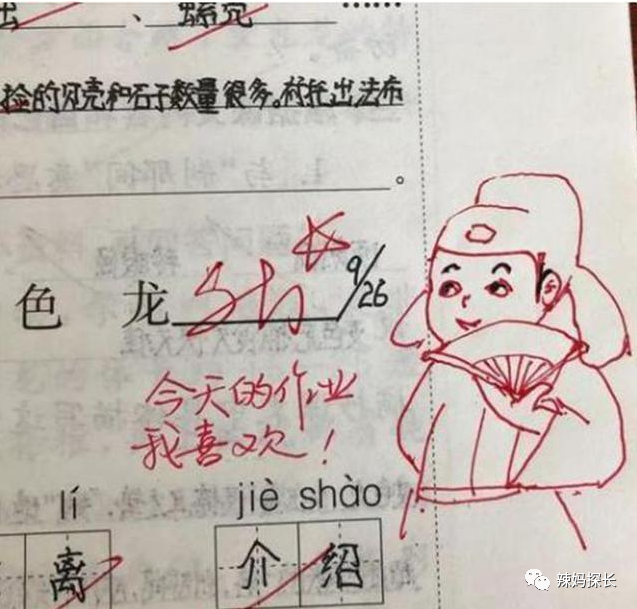 、
捡的贝壳和石子数量很多。衬托出法布
。
色 龙 9/26
今天的作业
我喜欢!
lí jiè shào
离 介 绍
辣妈探长